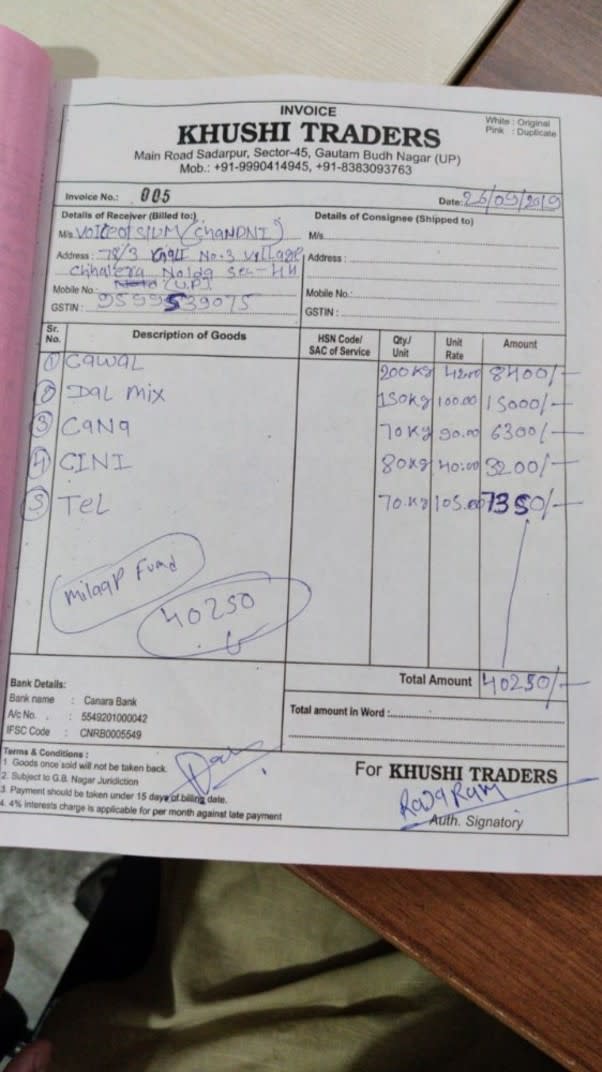 INVOICE
White : Original
Pink : Duplicate
KHUSHI TRADERS
Main Road Sadarpur, Sector-45, Gautam Budh Nagar (UP)
Mob.: +91-9990414945, +91-8383093763
Invoice No.: 005
Date: 26/09/2019
Details of Receiver (Billed to:)
Details of Consignee (Shipped to)
M/s VOICE OF SLUM (CHANDNI)
M/s.
Address : 78/3 Gali No.3 Village
Address :
Chhalera Noida Sec-44
(U.P)
Mobile No.:
Mobile No.:
GSTIN : 9599539075
GSTIN :
Sr. No. Description of Goods HSN Code/ SAC of Service Qty./ Unit Unit Rate Amount
① Cawal 200 Kg 42.00 8400/-
② Dal mix 150 Kg 100.00 15000/-
③ Cana 70 Kg 90.00 6300/-
④ CINI 80 Kg 40.00 3200/-
⑤ Tel 70 Kg 105.00 7350/-
milaap Fund
40250
Total Amount 40250/-
Bank Details:
Bank name : Canara Bank
A/c No. : 5549201000042
IFSC Code : CNRB0005549
Total amount in Word :
Terms & Conditions :
1. Goods once sold will not be taken back.
2. Subject to G.B. Nagar Juridiction
3. Payment should be taken under 15 days of billing date.
4. 4% interests charge is applicable for per month against late payment
For KHUSHI TRADERS
Raja Ram
Auth. Signatory